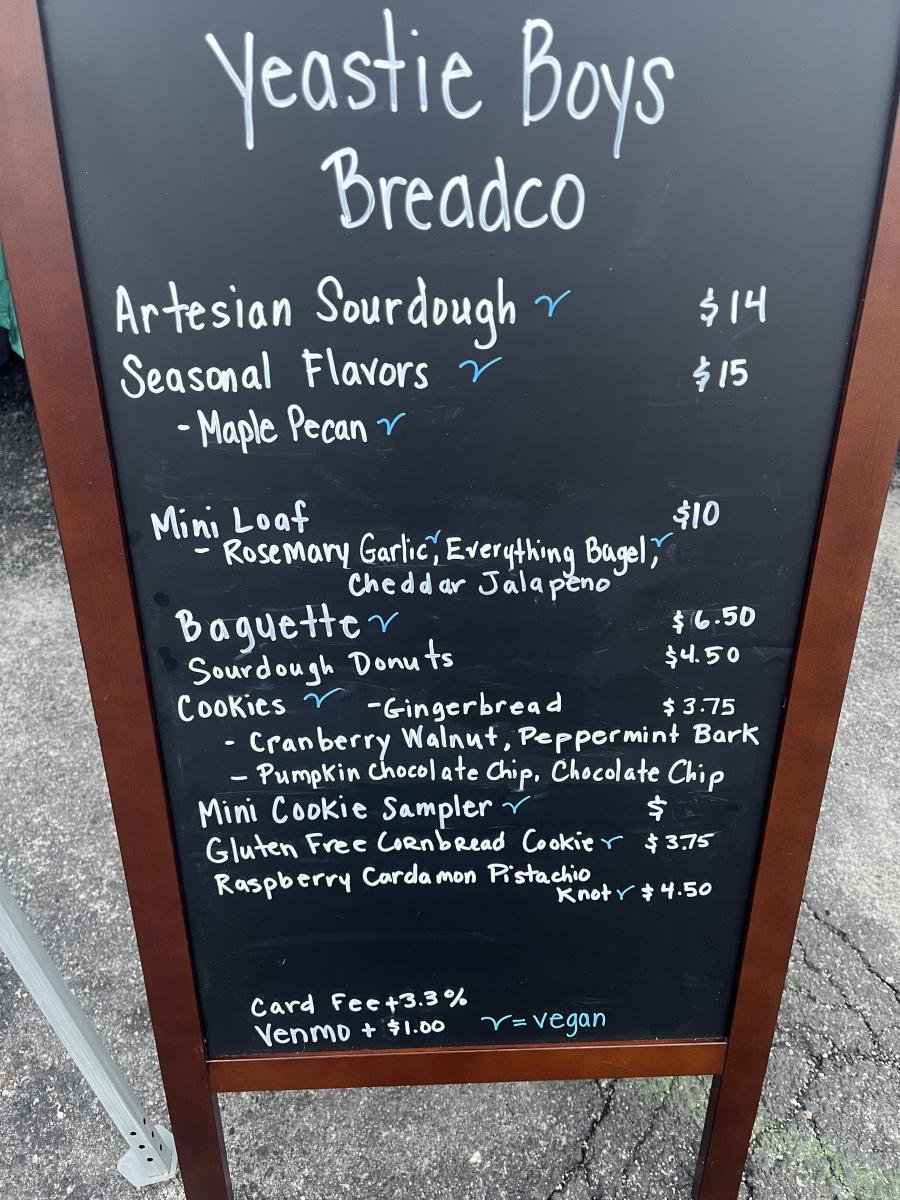 Yeastie Boys
Breadco
Artesian Sourdough v $14
Seasonal Flavors v $15
- Maple Pecan v
Mini Loaf $10
- Rosemary Garlic v, Everything Bagel v,
Cheddar Jalapeño
Baguette v $6.50
Sourdough Donuts $4.50
Cookies v -Gingerbread $3.75
- Cranberry Walnut, Peppermint Bark
- Pumpkin Chocolate Chip, Chocolate Chip
Mini Cookie Sampler v $
Gluten Free Cornbread Cookie v $3.75
Raspberry Cardamon Pistachio
Knot v $4.50
Card Fee +3.3%
Venmo + $1.00 v = vegan